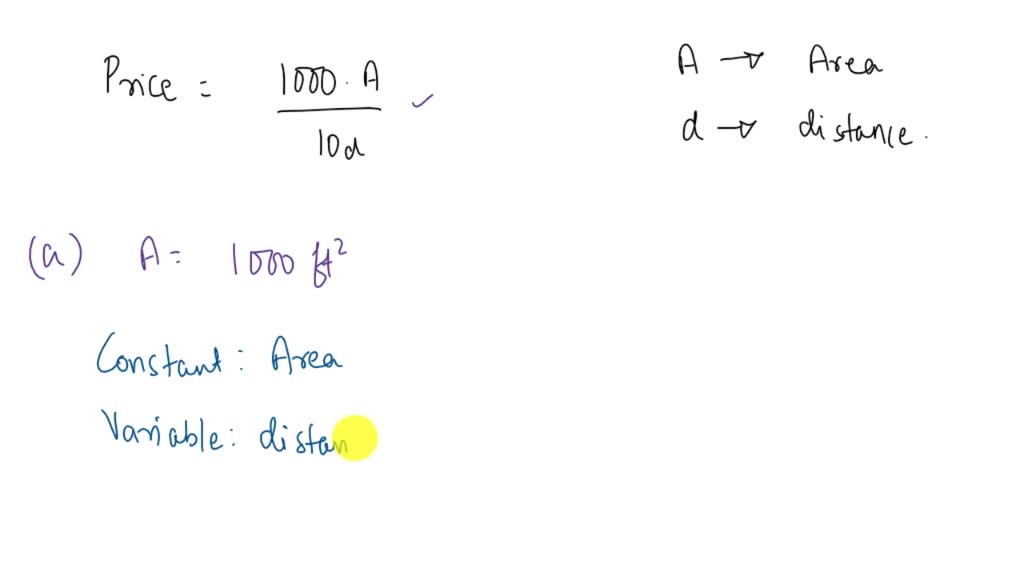 Price = 1000 · A / 10d ✓
A → Area
d → distance.
(a) A = 1000 ft²
Constant: Area
Variable: distan